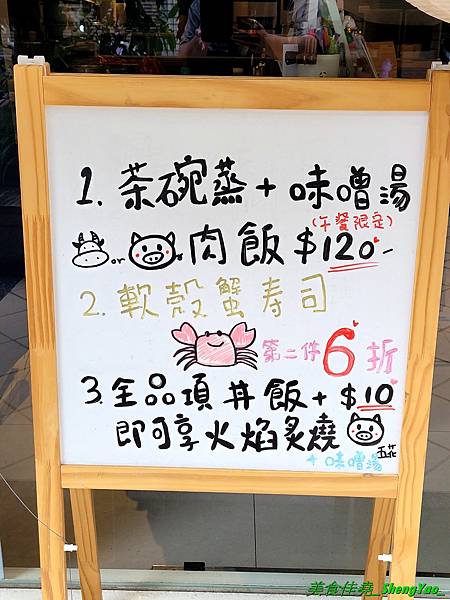 1. 茶碗蒸+味噌湯
(午餐限定)
or 肉飯 $120-
2. 軟殼蟹壽司
第二件6折
3. 全品項丼飯+$10
即可享火焰炙燒
五花
+味噌湯
美食佳堯_ShengYao_